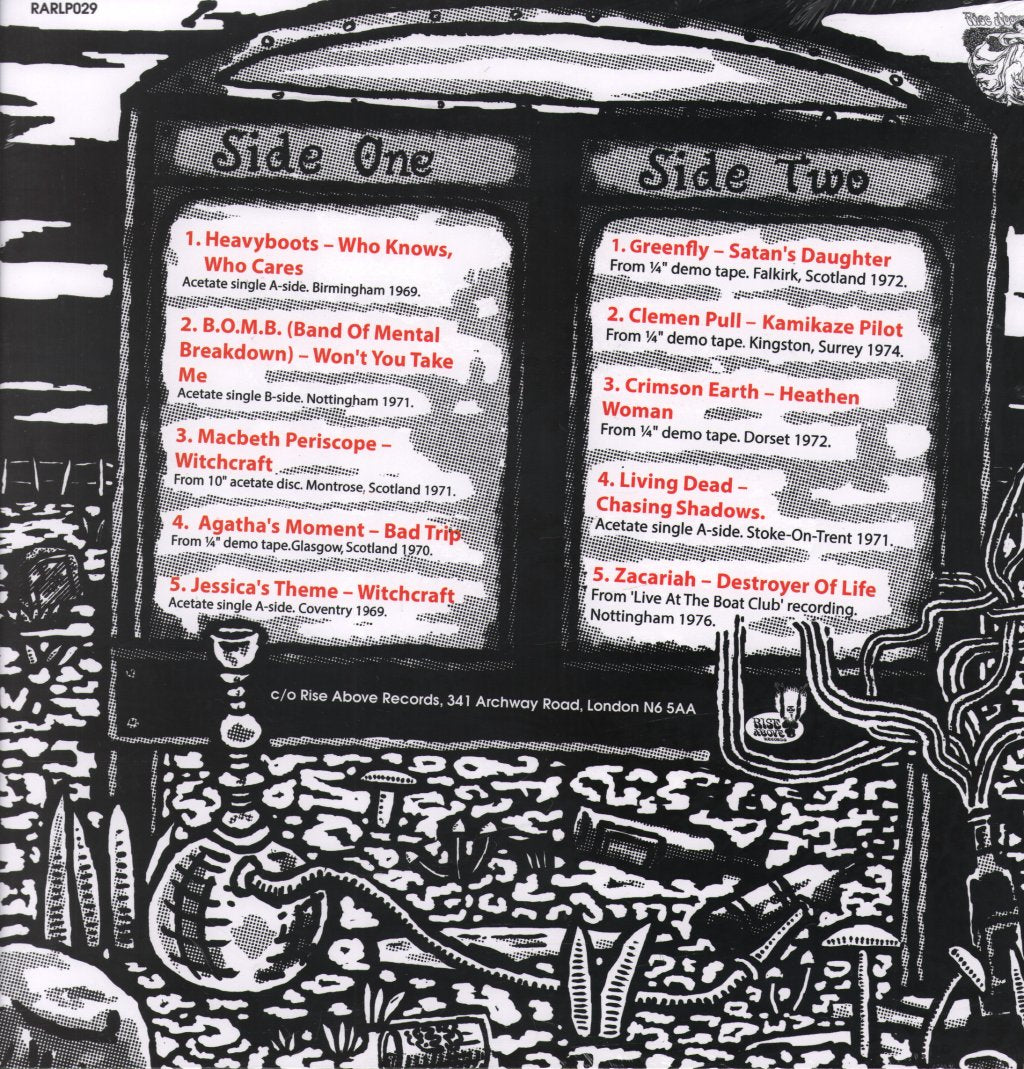 RARLP029
Rise Above
Side One
1. Heavyboots – Who Knows,
Who Cares
Acetate single A-side. Birmingham 1969.
2. B.O.M.B. (Band Of Mental
Breakdown) – Won't You Take
Me
Acetate single B-side. Nottingham 1971.
3. Macbeth Periscope –
Witchcraft
From 10" acetate disc. Montrose, Scotland 1971.
4. Agatha's Moment – Bad Trip
From ¼" demo tape.Glasgow, Scotland 1970.
5. Jessica's Theme – Witchcraft
Acetate single A-side. Coventry 1969.
Side Two
1. Greenfly – Satan's Daughter
From ¼" demo tape. Falkirk, Scotland 1972.
2. Clemen Pull – Kamikaze Pilot
From ¼" demo tape. Kingston, Surrey 1974.
3. Crimson Earth – Heathen
Woman
From ¼" demo tape. Dorset 1972.
4. Living Dead –
Chasing Shadows.
Acetate single A-side. Stoke-On-Trent 1971.
5. Zacariah – Destroyer Of Life
From 'Live At The Boat Club' recording.
Nottingham 1976.
c/o Rise Above Records, 341 Archway Road, London N6 5AA
RISE
ABOVE
RECORDS